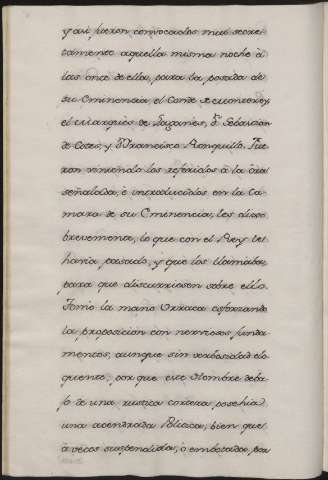 y assi fueron convocados mui secre-
tamente aquella misma noche â
las once de ella, para la posada de
su Eminencia, el Conde de Monterrey,
el Marqués de Leganés, Dn. Sebastian
de Cotes, y Dn. Francisco Ronquillo. Fue-
ron viniendo los referidos â la óra
señalada, è introducidos en la Ca-
mara de su Eminencia, les dixo
brevemente, lo que con el Rey le
havia pasado, y que los llamaba
para que discurriesen sobre ello.
Tomó la mano Urraca esforzando
la proposicion con nerviosos funda-
mentos, aunque sin verbosidad elo-
quente, por que este Hombre deba-
jo de una rustica corteza posehia
una acendrada Politica, bien que
â veces suspendida, ò embotada, por